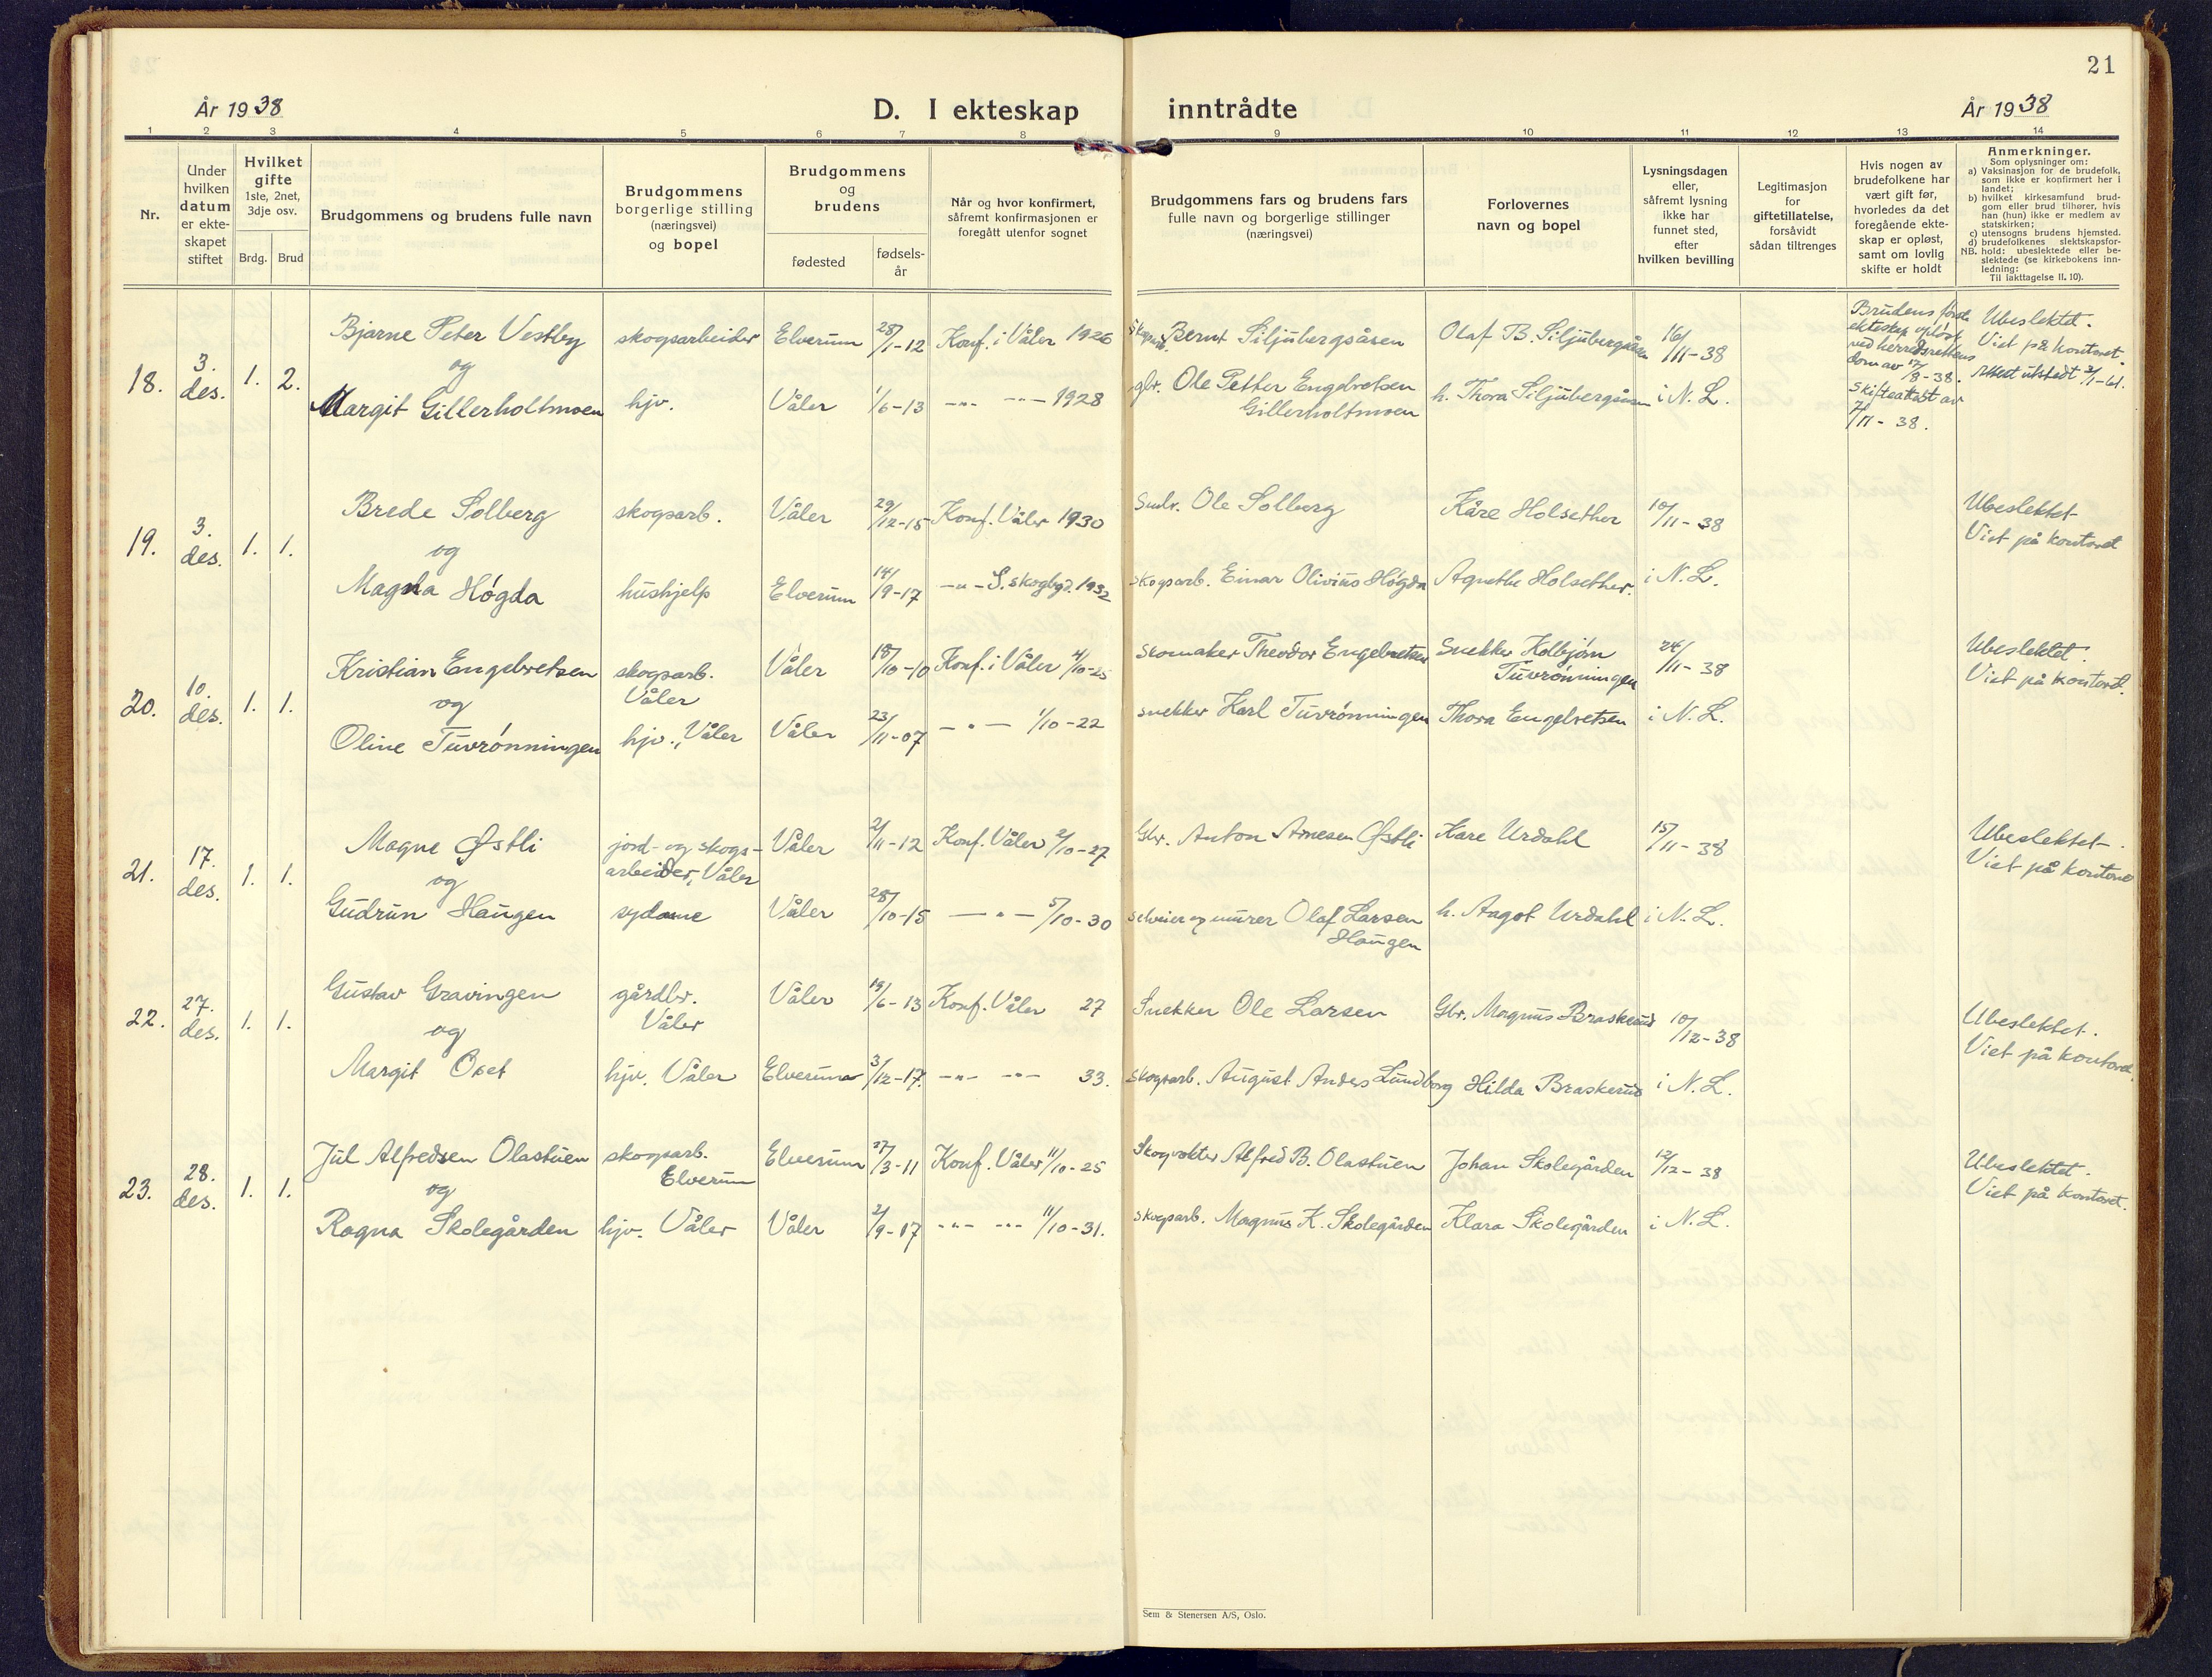 21
År 1938
D. I ekteskap inntrådte
År 1938
1 2 3 4 5 6 7 8 9 10 11 12 13 14
Nr.
Under hvilken datum er ekte-skapet stiftet
Hvilket gifte 1ste, 2net, 3dje osv.
Brdg. Brud
Brudgommens og brudens fulle navn
Brudgommens borgerlige stilling (næringsvei) og bopel
Brudgommens og brudens
fødested
fødsels-år
Når og hvor konfirmert, såfremt konfirmasjonen er foregått utenfor sognet
Brudgommens fars og brudens fars fulle navn og borgerlige stillinger (næringsvei)
Forlovernes navn og bopel
Lysningsdagen eller, såfremt lysning ikke har funnet sted, efter hvilken bevilling
Legitimasjon for giftetillatelse, forsåvidt sådan tiltrenges
Hvis nogen av brudefolkene har vært gift før, hvorledes da det foregående ekte-skap er opløst, samt om lovlig skifte er holdt
Anmerkninger.
Som oplysninger om:
a) Vaksinasjon for de brudefolk, som ikke er konfirmert her i landet;
b) hvilket kirkesamfund brud-gom eller brud tilhører, hvis han (hun) ikke er medlem av statskirken;
c) utensogns brudens hjemsted.
d) brudefolkenes slektskapsfor-hold: ubeslektede eller be-slektede (se kirkebokens inn-ledning:
NB. Til iakttagelse II. 10).
18. 3. des. 1. 2. Bjarne Peter Vestby skogsarbeider Elverum 28/1-12 Konf. i Våler 1926 Bernt Siljubergsåsen Olaf B. Siljubergsåsen 16/11-38
og
Margit Gillerholtmoen hjv. Våler 1/6-13 -"- -"- 1928 gbr. Ole Petter Engebretsen Gillerholtmoen h. Thora Siljubergsåsen i N. L.
Brudens første ekteskap opløst ved herredsrettens dom av 17/8-38. Skifteattest av 7/11-38.
Ubeslektet. Viet på kontoret. Attest utstedt 3/1-61.
19. 3. des. 1. 1. Brede Solberg skogsarb. Våler 29/12-15 Konf. Våler 1930 Ole Solberg Kåre Holsether 10/11-38 Ubeslektet
og Viet på kontoret
Magna Høgda hushjelp Elverum 14/9-17 -"- S. skogbgd. 1932 skogsarb. Einar Olivius Høgda Agnethe Holsether. i N. L.
20. 10. des. 1. 1. Kristian Engebretsen skogsarb. Våler Våler 18/10-10 Konf. i Våler 4/10-25 skomaker Theodor Engebretsen Snekker Kolbjørn Tuvrønningen 24/11-38 Ubeslektet.
og Viet på kontoret.
Oline Tuvrønningen hjv., Våler Våler 23/11-07 -"- 1/10-22 snekker Karl Tuvrønningen Thora Engebretsen i N. L.
21. 17. des. 1. 1. Magne Østli jord- og skogs-arbeider, Våler Våler 2/11-12 Konf. Våler 2/10-27 Gbr. Anton Arnesen Østli Kare Urdahl 15/11-38 Ubeslektet.
og Viet på kontoret
Gudrun Haugen sydame Våler 28/10-15 -"- 5/10-30 selveier og murer Olaf Larsen Haugen h. Aagot Urdahl i N. L.
22. 27. des. 1. 1. Gustav Gravingen gårdbr. Våler Våler 19/6-13 Konf. Våler 27 Snekker Ole Larsen Gbr. Magnus Braskerud 10/12-38 Ubeslektet.
og Viet på kontoret.
Margit Oset hjv. Våler Elverum 3/12-17. -"- -"- 33. skogsarb. August Anders Lundborg Hilda Braskerud i N. L.
23. 28. des. 1. 1. Jul Alfredsen Olastuen skogsarb. Elverum Elverum 27/3-11 Konf. Våler 11/10-25 Skogvokter Alfred B. Olastuen Johan Skolegården 12/12-38 Ubeslektet.
og Viet på kontoret.
Ragna Skolegården hjv. Våler Våler 2/9-17 -"- -"- 11/10-31. skogsarb. Magnus K. Skolegården Klara Skolegården i N. L.
Sem & Stenersen A/S, Oslo.